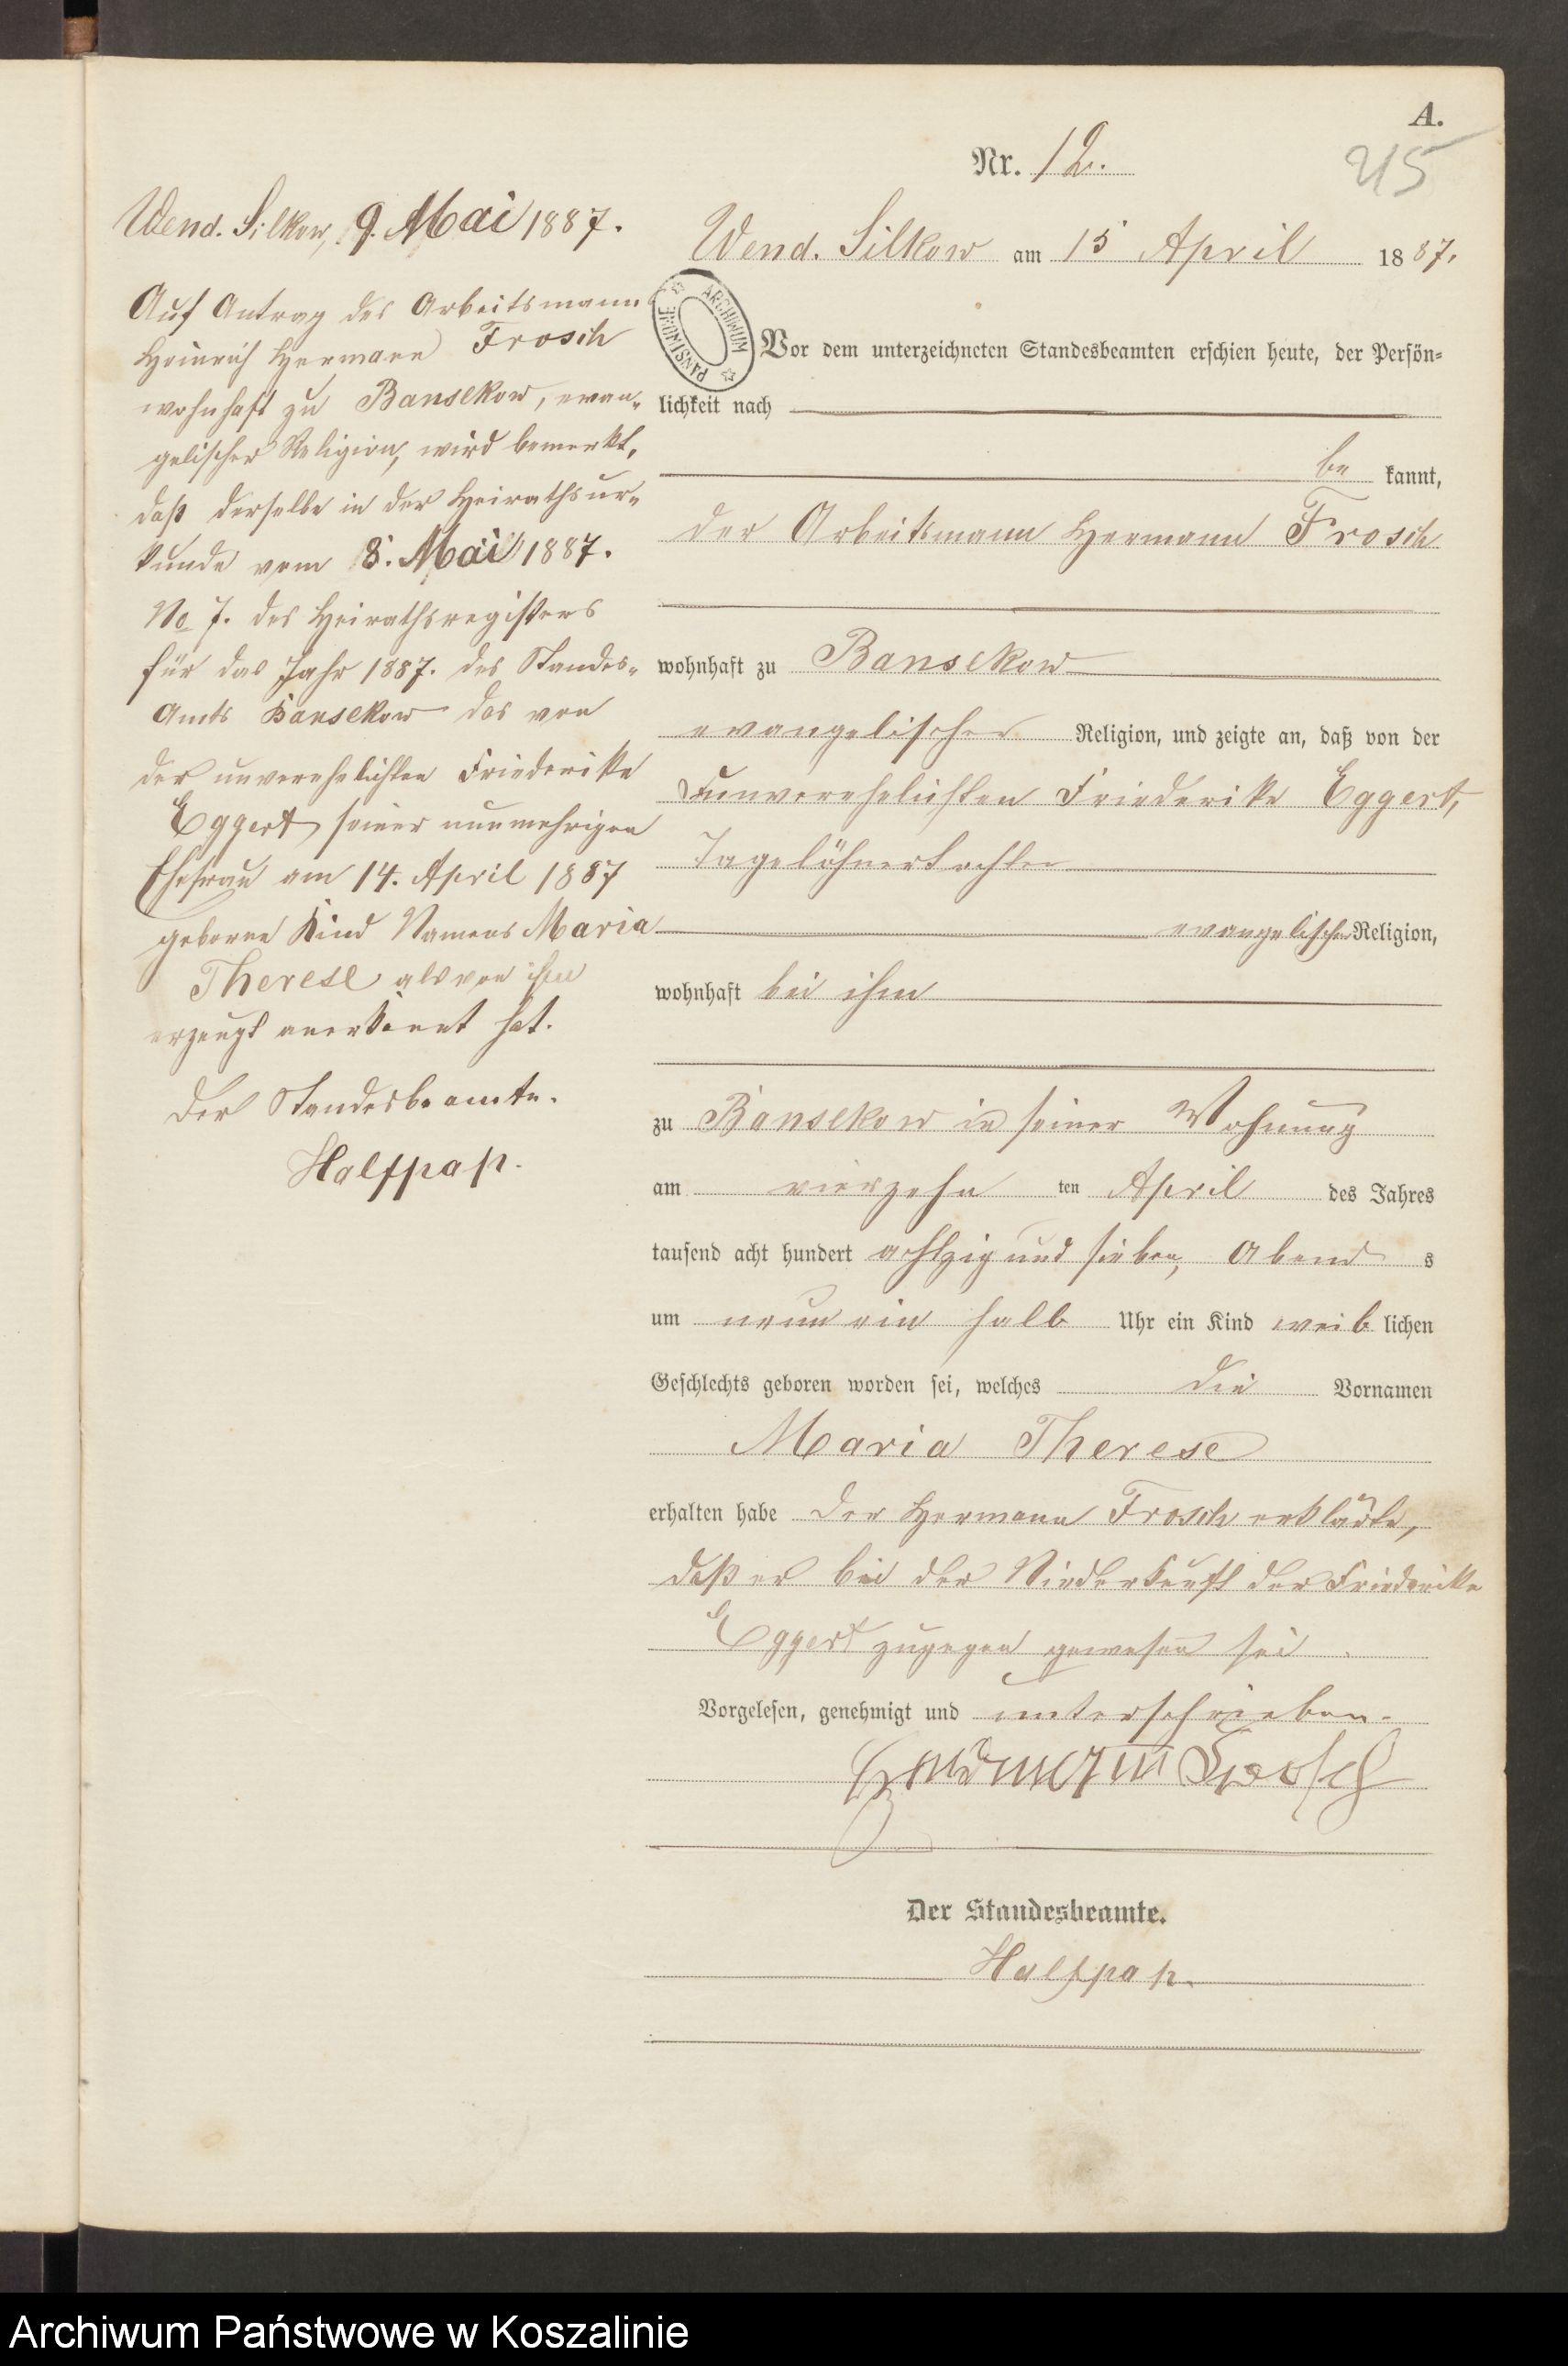 A.
Nr. 12.
215
Wend. Silkow, 9. Mai 1887.
Auf Antrag des Arbeitsmann
Heinrich Hermann Frosch
wohnhaft zu Bansekow, evan-
gelischer Religion, wird bemerkt,
daß derselbe in der Heirathsur-
kunde vom 8. Mai 1887.
No 7. des Heirathsregisters
für das Jahr 1887. des Standes-
Amts Bansekow das von
der unverehelichten Friederike
Eggert seiner nunmehrigen
Ehefrau am 14. April 1887
geborne Kind Namens Maria
Therese als von ihm
erzeugt anerkannt hat.
Der Standesbeamte.
Halfpap.
Wend. Silkow am 15 April 1887.
ARCHIWUM PAŃSTWOWE
Vor dem unterzeichneten Standesbeamten erschien heute, der Persön-
lichkeit nach
be kannt,
der Arbeitsmann Hermann Frosch
wohnhaft zu Bansekow
evangelischer Religion, und zeigte an, daß von der
unverehelichten Friederike Eggert,
Tagelöhnertochter
evangelischer Religion,
wohnhaft bei ihm
zu Bansekow in seiner Wohnung
am vierzehn ten April des Jahres
tausend acht hundert achtzig und sieben, Abend s
um neun ein halb Uhr ein Kind weib lichen
Geschlechts geboren worden sei, welches die Vornamen
Maria Therese
erhalten habe der Hermann Frosch erklärte,
daß er bei der Niederkunft der Friederike
Eggert zugegen gewesen sei.
Vorgelesen, genehmigt und unterschrieben.
Frosch
Der Standesbeamte.
Halfpap.
Archiwum Państwowe w Koszalinie